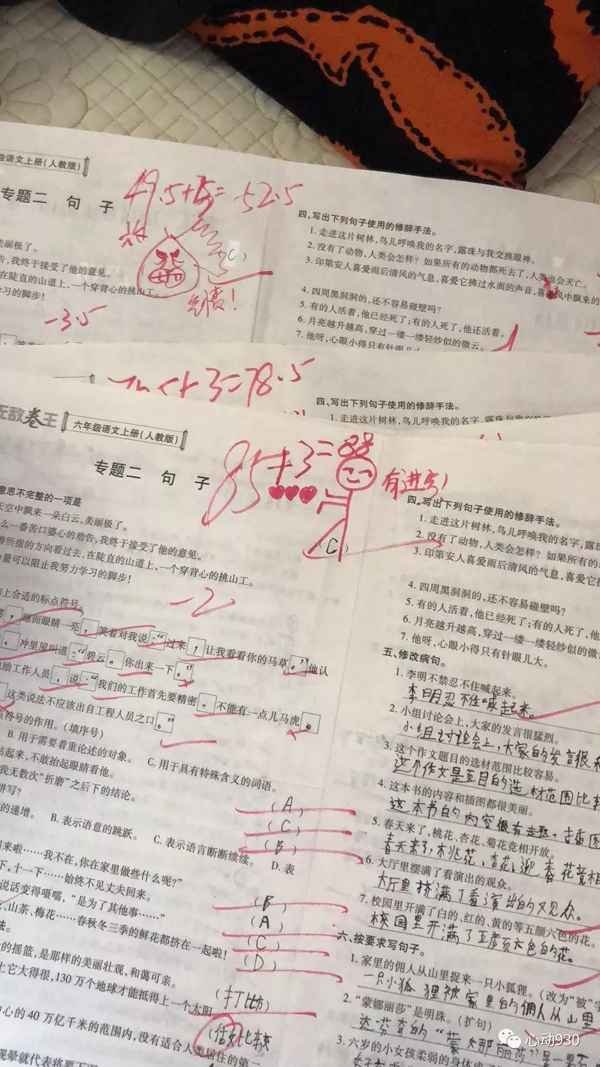 级语文上册(人教版)
专题二 句 子
49.5+3=52.5
美丽极了。
告,我终于接受了他的意见。
在陡直的山道上,一个穿背心的挑山工。
学习的脚步!
-3.5
四、写出下列句子使用的修辞手法。
1. 走进这片树林,鸟儿呼唤我的名字,露珠与我交换眼神。
2. 没有了动物,人类会怎样?如果所有的动物都死去了,人类也会灭亡。
3. 印第安人喜爱雨后清风的气息,喜爱它拂过水面的声音,喜爱风中飘来的
4. 四周黑洞洞的,还不容易碰壁吗?
5. 有的人活着,他已经死了;有的人死了,他还活着。
6. 月亮越升越高,穿过一缕一缕轻纱似的微云。
7. 他呀,心眼小得只有针眼儿
+3=78.5
四、写出下列句子使用的修辞手法。
无敌卷王
六年级语文上册(人教版)
专题二 句 子
85+3=88
有进步!
意思不完整的一项是
天空中飘来一朵白云,美丽极了。
么一番苦口婆心的劝告,我终于接受了他的意见。
所指的方向看过去,在陡直的山道上,一个穿背心的挑山工。
量可以阻止我努力学习的脚步!
(C)
-2
上合适的标点符号。
,继而眼睛一亮,笑着对我说:“过来,让我看看你的马草。”他认
,冲里屋叫道:“碧云。你出来一下。”
给工作人员,说:“我们的工作首先要精密。不能有一点儿马虎。
这类说法不应该出自工程人员之口。”
点符号的作用。(填序号)
B. 用于需要着重论述的对象。 C. 用于具有特殊含义的词语。
站起来,不敢抬起眼睛看他。
我无数次“折磨”之后的结论。
(A)
(C)
的递增。 B. 表示语意的跳跃。 C. 表示语言断断续续。 D. 表
(B)
回来啦……我不在,你在家里做些什么呢?”
下,十一下……始终不见丈夫回来。
(B)
说话变得嗫嚅,“是为了其他事……”
(A)
、山茶、梅花……春秋冬三季的鲜花都挤在一起啦!
(C)
(D)
的摇篮,是那样的美丽壮观,和蔼可亲。
上它大得很,130万个地球才能抵得上一个太阳
(打比方)
中心的40万亿千米的范围内,没有适合人类居住的第二
四、写出下列句子使用的修辞手法。
1. 走进这片树林,鸟儿呼唤我的名字,露
2. 没有了动物,人类会怎样?如果所有的
3. 印第安人喜爱雨后清风的气息,喜爱它
4. 四周黑洞洞的,还不容易碰壁吗?
5. 有的人活着,他已经死了;有的人死了,他
6. 月亮越升越高,穿过一缕一缕轻纱似的
7. 他呀,心眼小得只有针眼儿大。
五、修改病句。
1. 李明不禁忍不住喊起来。
李明忍不住喊起来。
2. 小组讨论会上,大家的发言很猛烈。
小组讨论会上,大家的发言很
3. 这个作文题目的选材范围比较容易。
这个作文题目的选材范围比
4. 这本书的内容和插图都很美丽。
这本书的内容很
5. 春天来了,桃花、杏花、菊花竞相开放。
春天来了,桃花、杏花、迎春花竞相
6. 大厅里摆满了看演出的观众。
大厅里挤满了看演出的观众。
7. 校园里开满了白的、红的、黄的等五颜六色的花。
校园里开满了五颜六色的花。
六、按要求写句子。
1. 家里的佣人从山里捉来一只小狐狸。(改为“被”字
一只小狐狸被家里的佣人从山里
2. “蒙娜丽莎”是明珠。(扩句)
达芬奇的“蒙娜丽莎”是一
3. 六岁的小女孩柔弱的身体
心动930